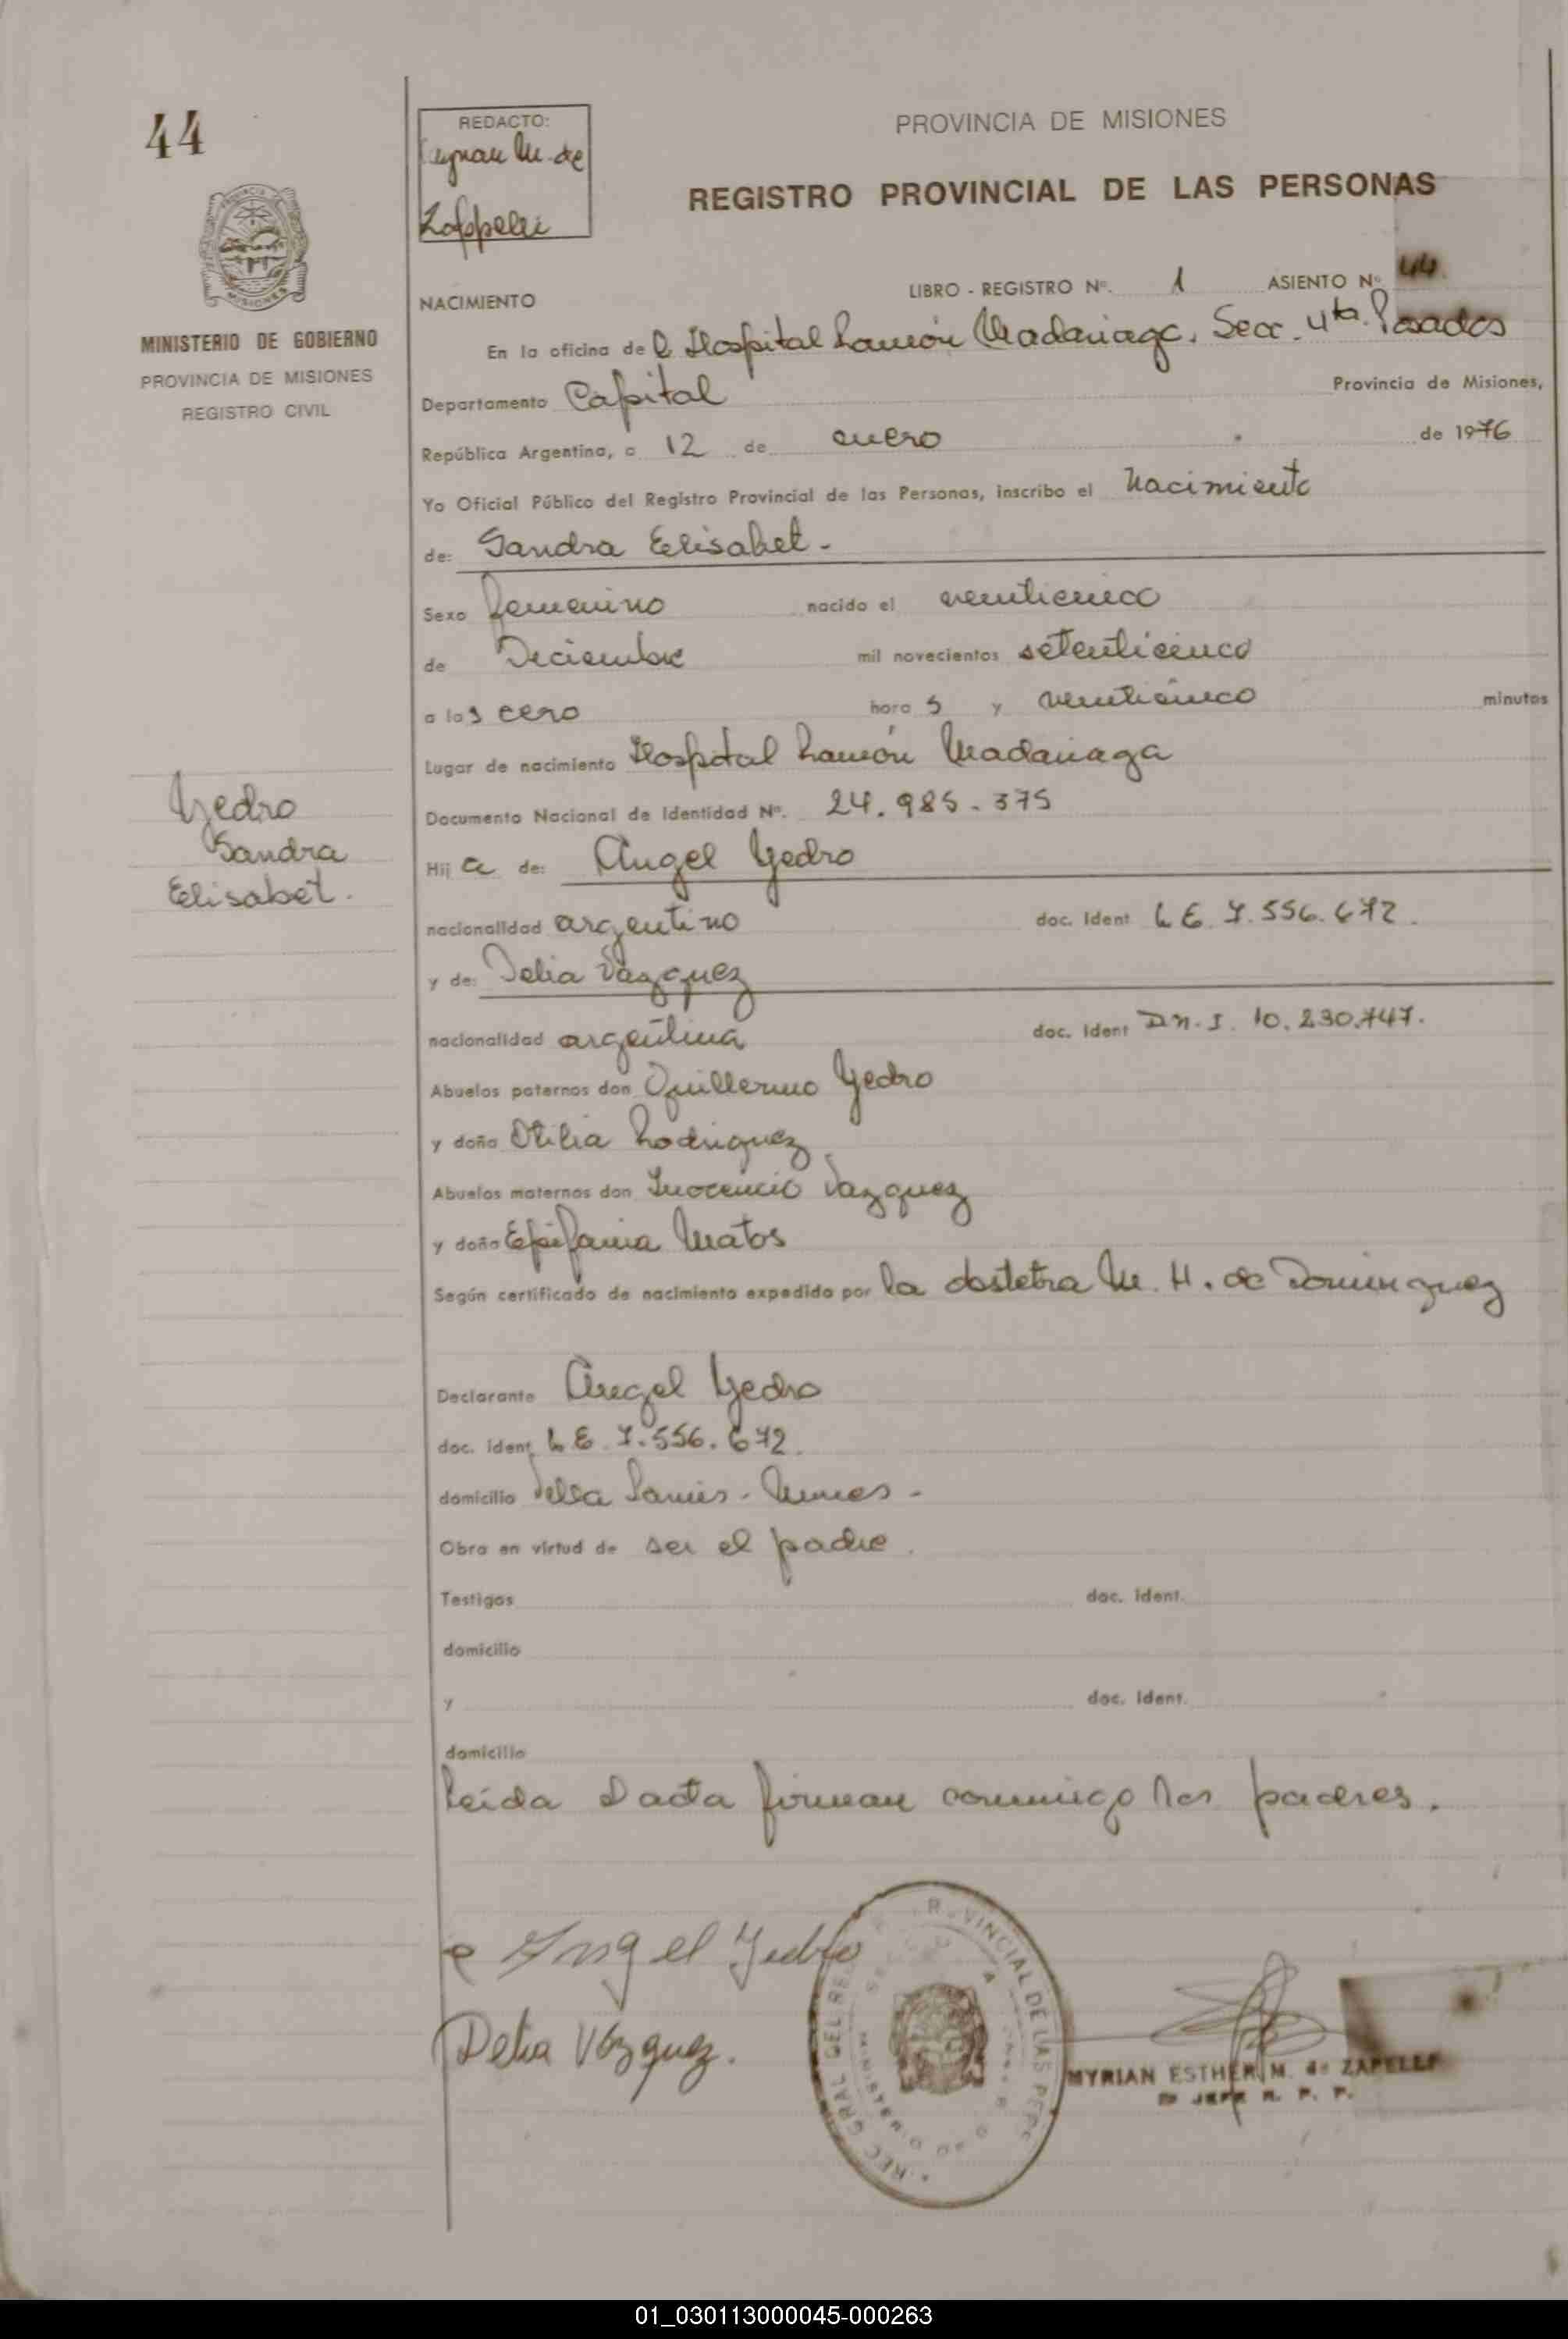 44
REDACTO:
M. de
PROVINCIA DE MISIONES
REGISTRO PROVINCIAL DE LAS PERSONAS
MINISTERIO DE GOBIERNO
PROVINCIA DE MISIONES
REGISTRO CIVIL
NACIMIENTO
LIBRO - REGISTRO Nº. 1 ASIENTO Nº 44
En la oficina del Hospital Ramón Madariaga. Secc. 4ta. Posadas
Departamento Capital Provincia de Misiones,
República Argentina, a 12 de enero de 1976
Yo Oficial Público del Registro Provincial de las Personas, inscribo el nacimiento
de: Sandra Elisabet.-
Sexo femenino nacido el
de Diciembre mil novecientos
a las cero horas y minutos
Lugar de nacimiento Hospital Ramón Madariaga
Documento Nacional de Identidad Nº. 24.985.375
Yedro
Sandra
Elisabet.
Hija de: Angel Yedro
nacionalidad argentino doc. Ident L E. 7.556.672.
y de: Delia Vázquez
nacionalidad argentina doc. Ident D.N.I. 10.230.747.
Abuelos paternos don Guillermo Yedro
y doña Otilia Rodriguez
Abuelos maternos don Inocencio Vazquez
y doña Epifania Matos
Según certificado de nacimiento expedido por la obstetra M. H. de Dominguez
Declarante Angel Yedro
doc. ident. L E. 7.556.672.
domicilio Villa
Obra en virtud de ser el padre.
Testigos doc. ident.
domicilio
y doc. Ident.
domicilio
Leida el acta firman conmigo los padres.
Angel Yedro
Delia Vázquez.
MYRIAN ESTHER M. de ZAPELLI
JEFE R. P. P.
01_030113000045-000263